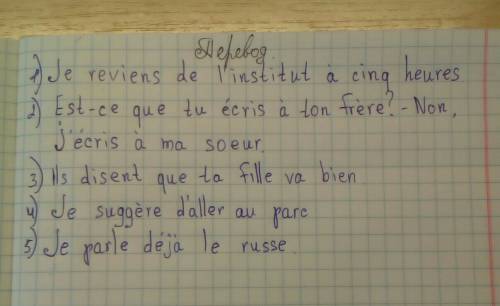 Перевод.
1) Je reviens de l'institut à cinq heures
2) Est-ce que tu écris à ton frère? - Non,
j'écris à ma soeur.
3) Ils disent que ta fille va bien
4) Je suggère d'aller au parc
5) Je parle déjà le russe.